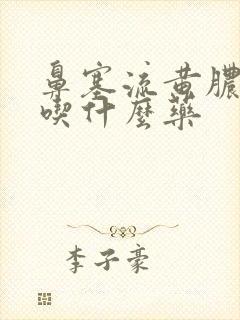 鼻塞流黄膿
喫什麼藥
李子豪